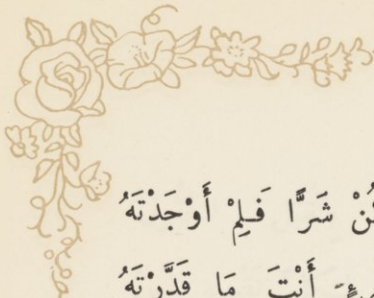 شَرًّا فَلِمْ أَوْجَدْتَهُ
أَنْتَ مَا قَدَّرْتَهُ